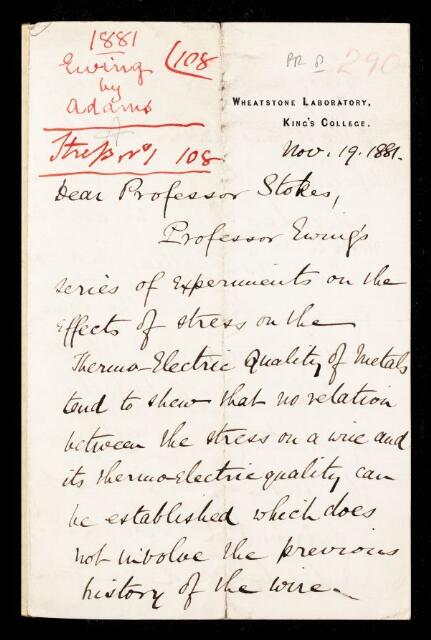 1881
Ewing (108
by
Adams
A
Stress no/ 108
RR 8 290
WHEATSTONE LABORATORY,
KING'S COLLEGE.
Nov. 19. 1881.
Dear Professor Stokes,
Professor Ewing's
series of experiments on the
effects of stress on the
Thermo-Electric Quality of Metals
tend to shew that no relation
between the stress on a wire and
its thermo-electric quality can
be established which does
not involve the previous
history of the wire